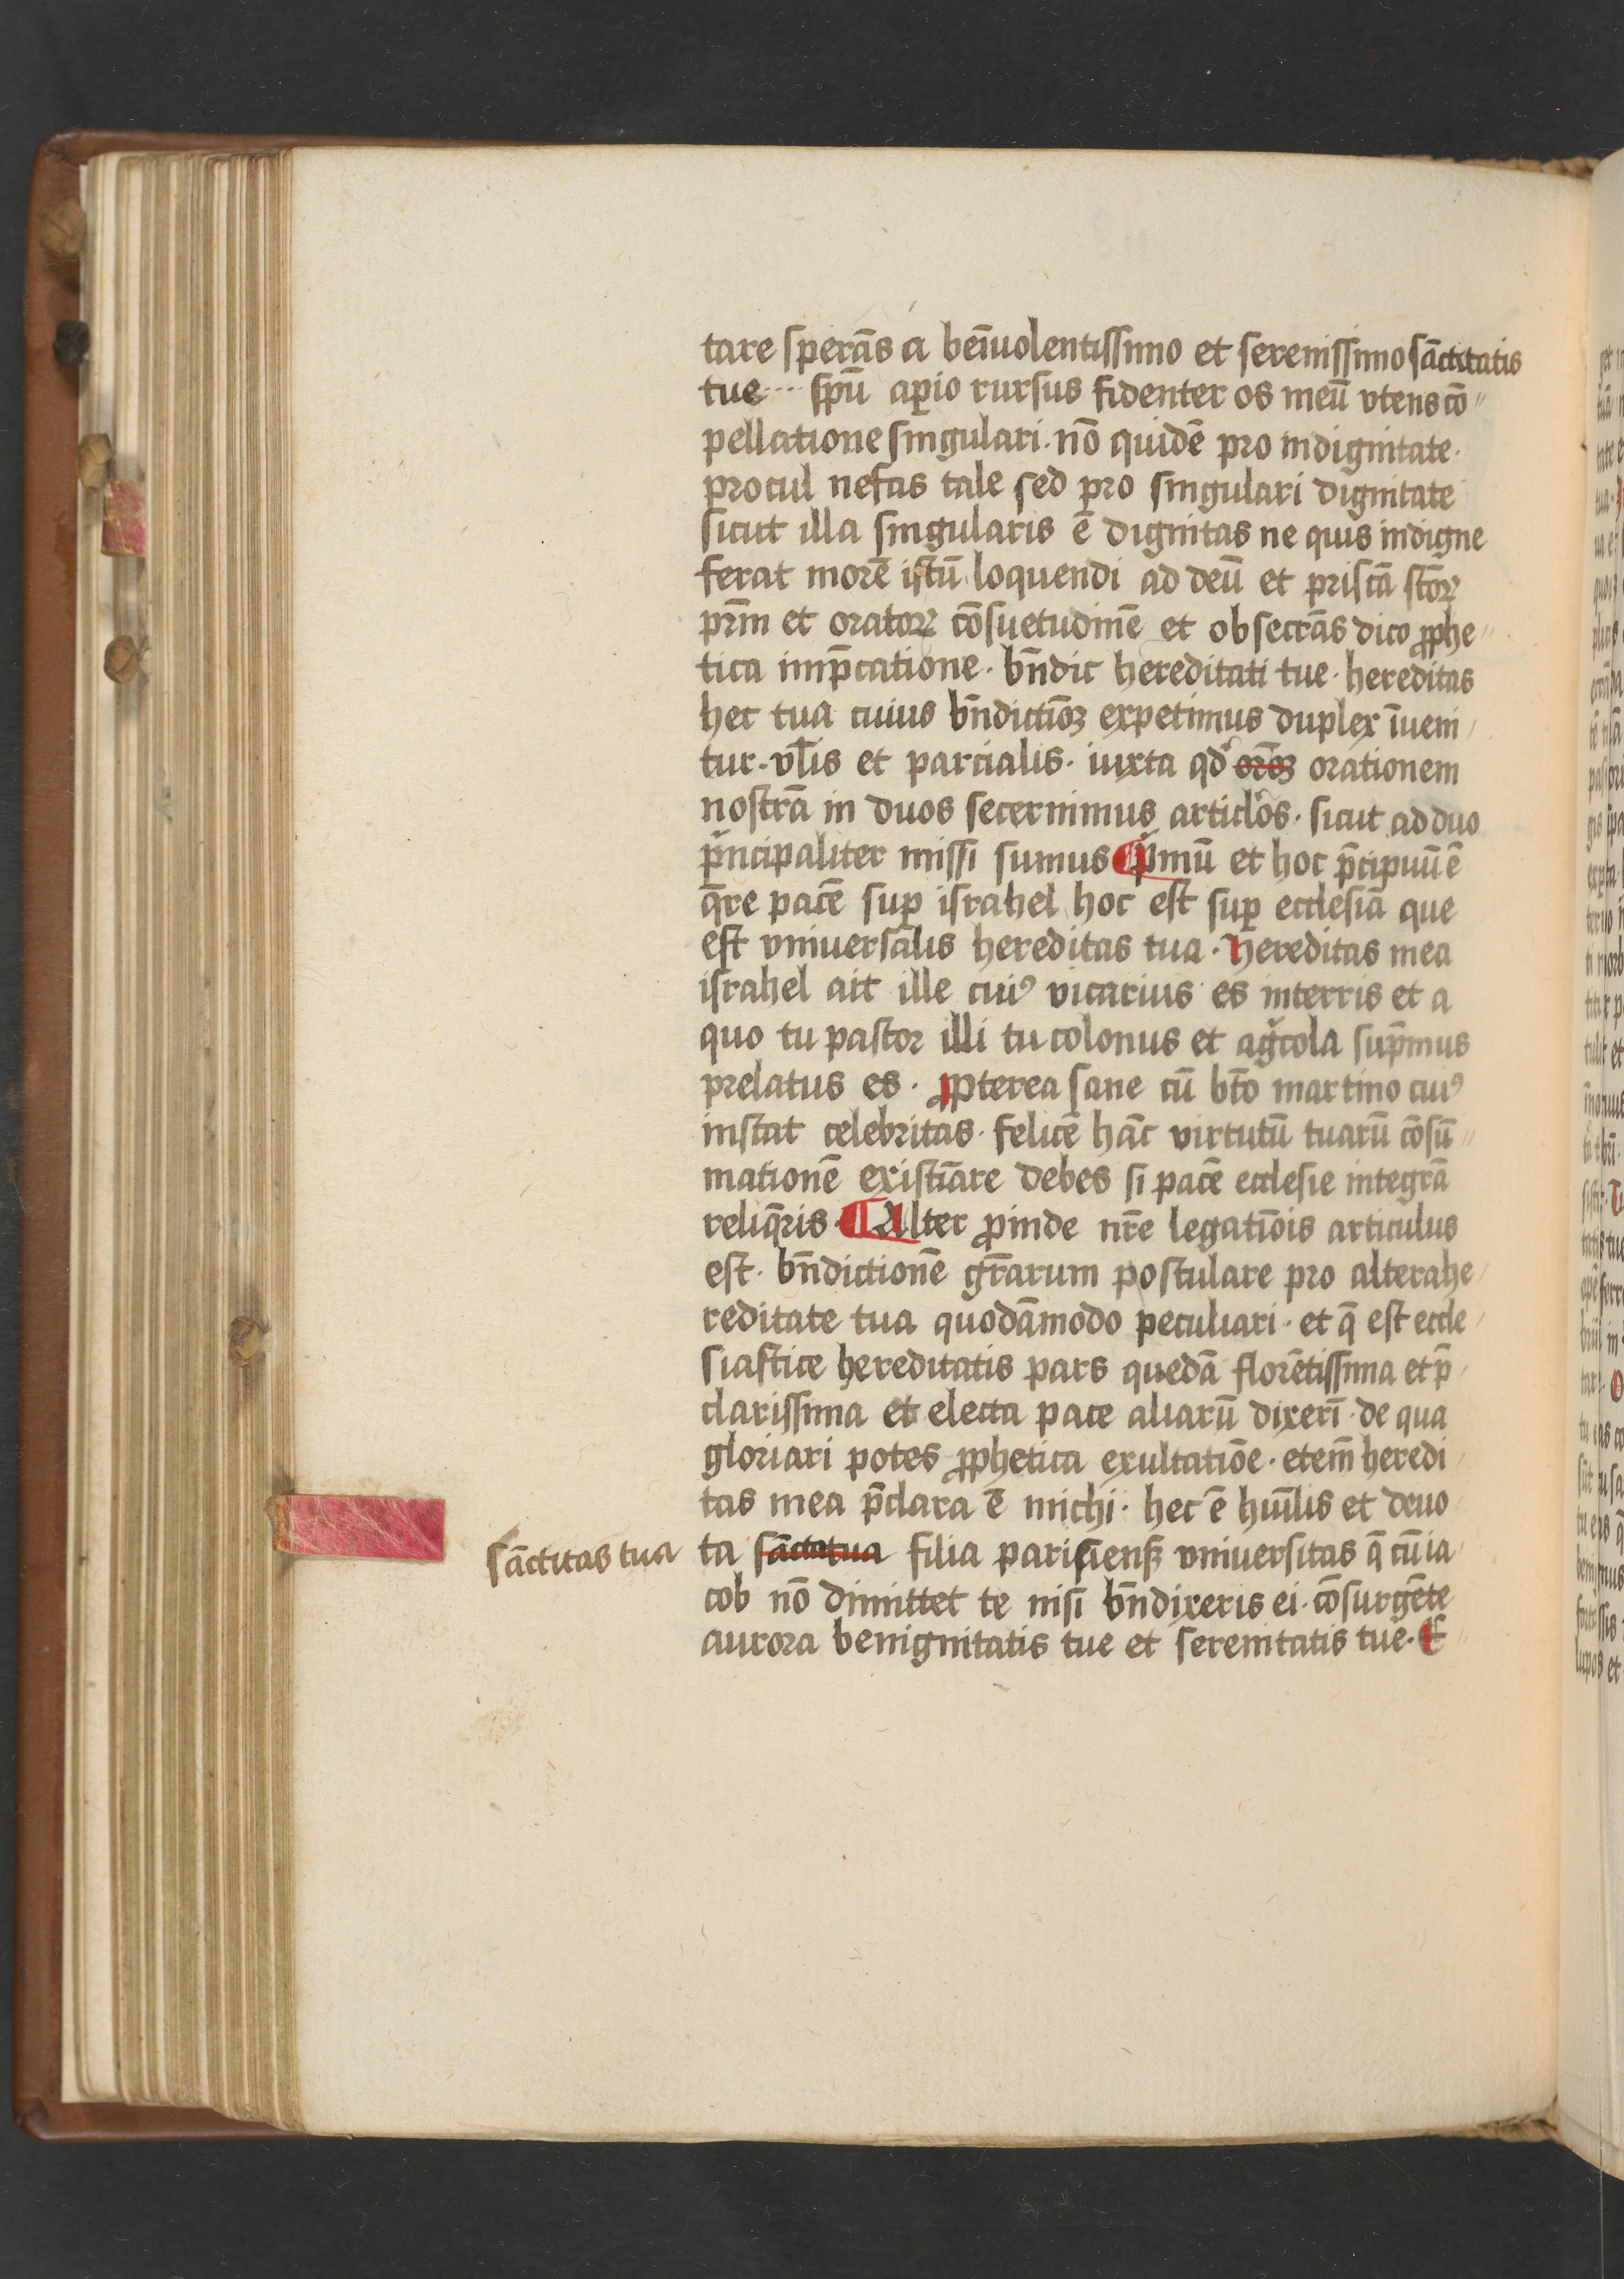 tare sperās a beīuolentissimo et serenissimo sāctitatis
tue spū aꝑio rursus fidenter os meū vtens cō
pellatione singulari · nō quidē pro indignitate ·
procul nefas tale sed pro singulari dignitate
sicut illa singularis ē dignitas ne quis indigne
ferat morē istū loquendi ad deū et priscā sc̄oꝝ
pr̄m et oratoꝝ cōsuetudinē et obsecrās dico ꝓphe
tica imp̄catione · bn̄dic hereditati tue · hereditas
hec tua cuius bn̄dictiōꝫ expetimus duplex īueni
tur · vl̄is et parcialis · iuxta qd' or̄oꝫ orationem
nostrā in duos secernimus articl̄os · sicut ad duo
pͥncipaliter missi sumus ¶ pͥmū et hoc p̄cipuū ē
q̄re pacē suꝑ israhel hoc est suꝑ ecclesiā que
est vniuersalis hereditas tua · Hereditas mea
israhel ait ille cuiꝰ vicarius es in terris et a
quo tu pastor illi tu colonus et agͥcola sup̄mus
prelatus es · Ꝓpterea sane cū bt̄o martino cuiꝰ
instat celebritas · felicē hāc virtutū tuarū cōsū
mationē existīare debes si pacē ecclesie integrā
reliq̄ris · ¶ Alter ꝓinde nr̄e legatiōis articulus
est · bn̄dictionē gr̄arum postulare pro altera he
reditate tua quodāmodo peculiari · et q̄ est eccle
siastice hereditatis pars quedā florētissima et p̄
clarissima et electa pace aliarū dixerī · de qua
gloriari potes ꝓphetica exultatiōe · etem̄ heredi
tas mea p̄clara ē michi · hec ē hūilis et deuo
sāctitas tua
ta sāctatua filia parisienß vniuersitas q̄ cū ia
cob nō dimittet te nisi bn̄dixeris ei · cōsurgēte
aurora benignitatis tue et serenitatis tue · E